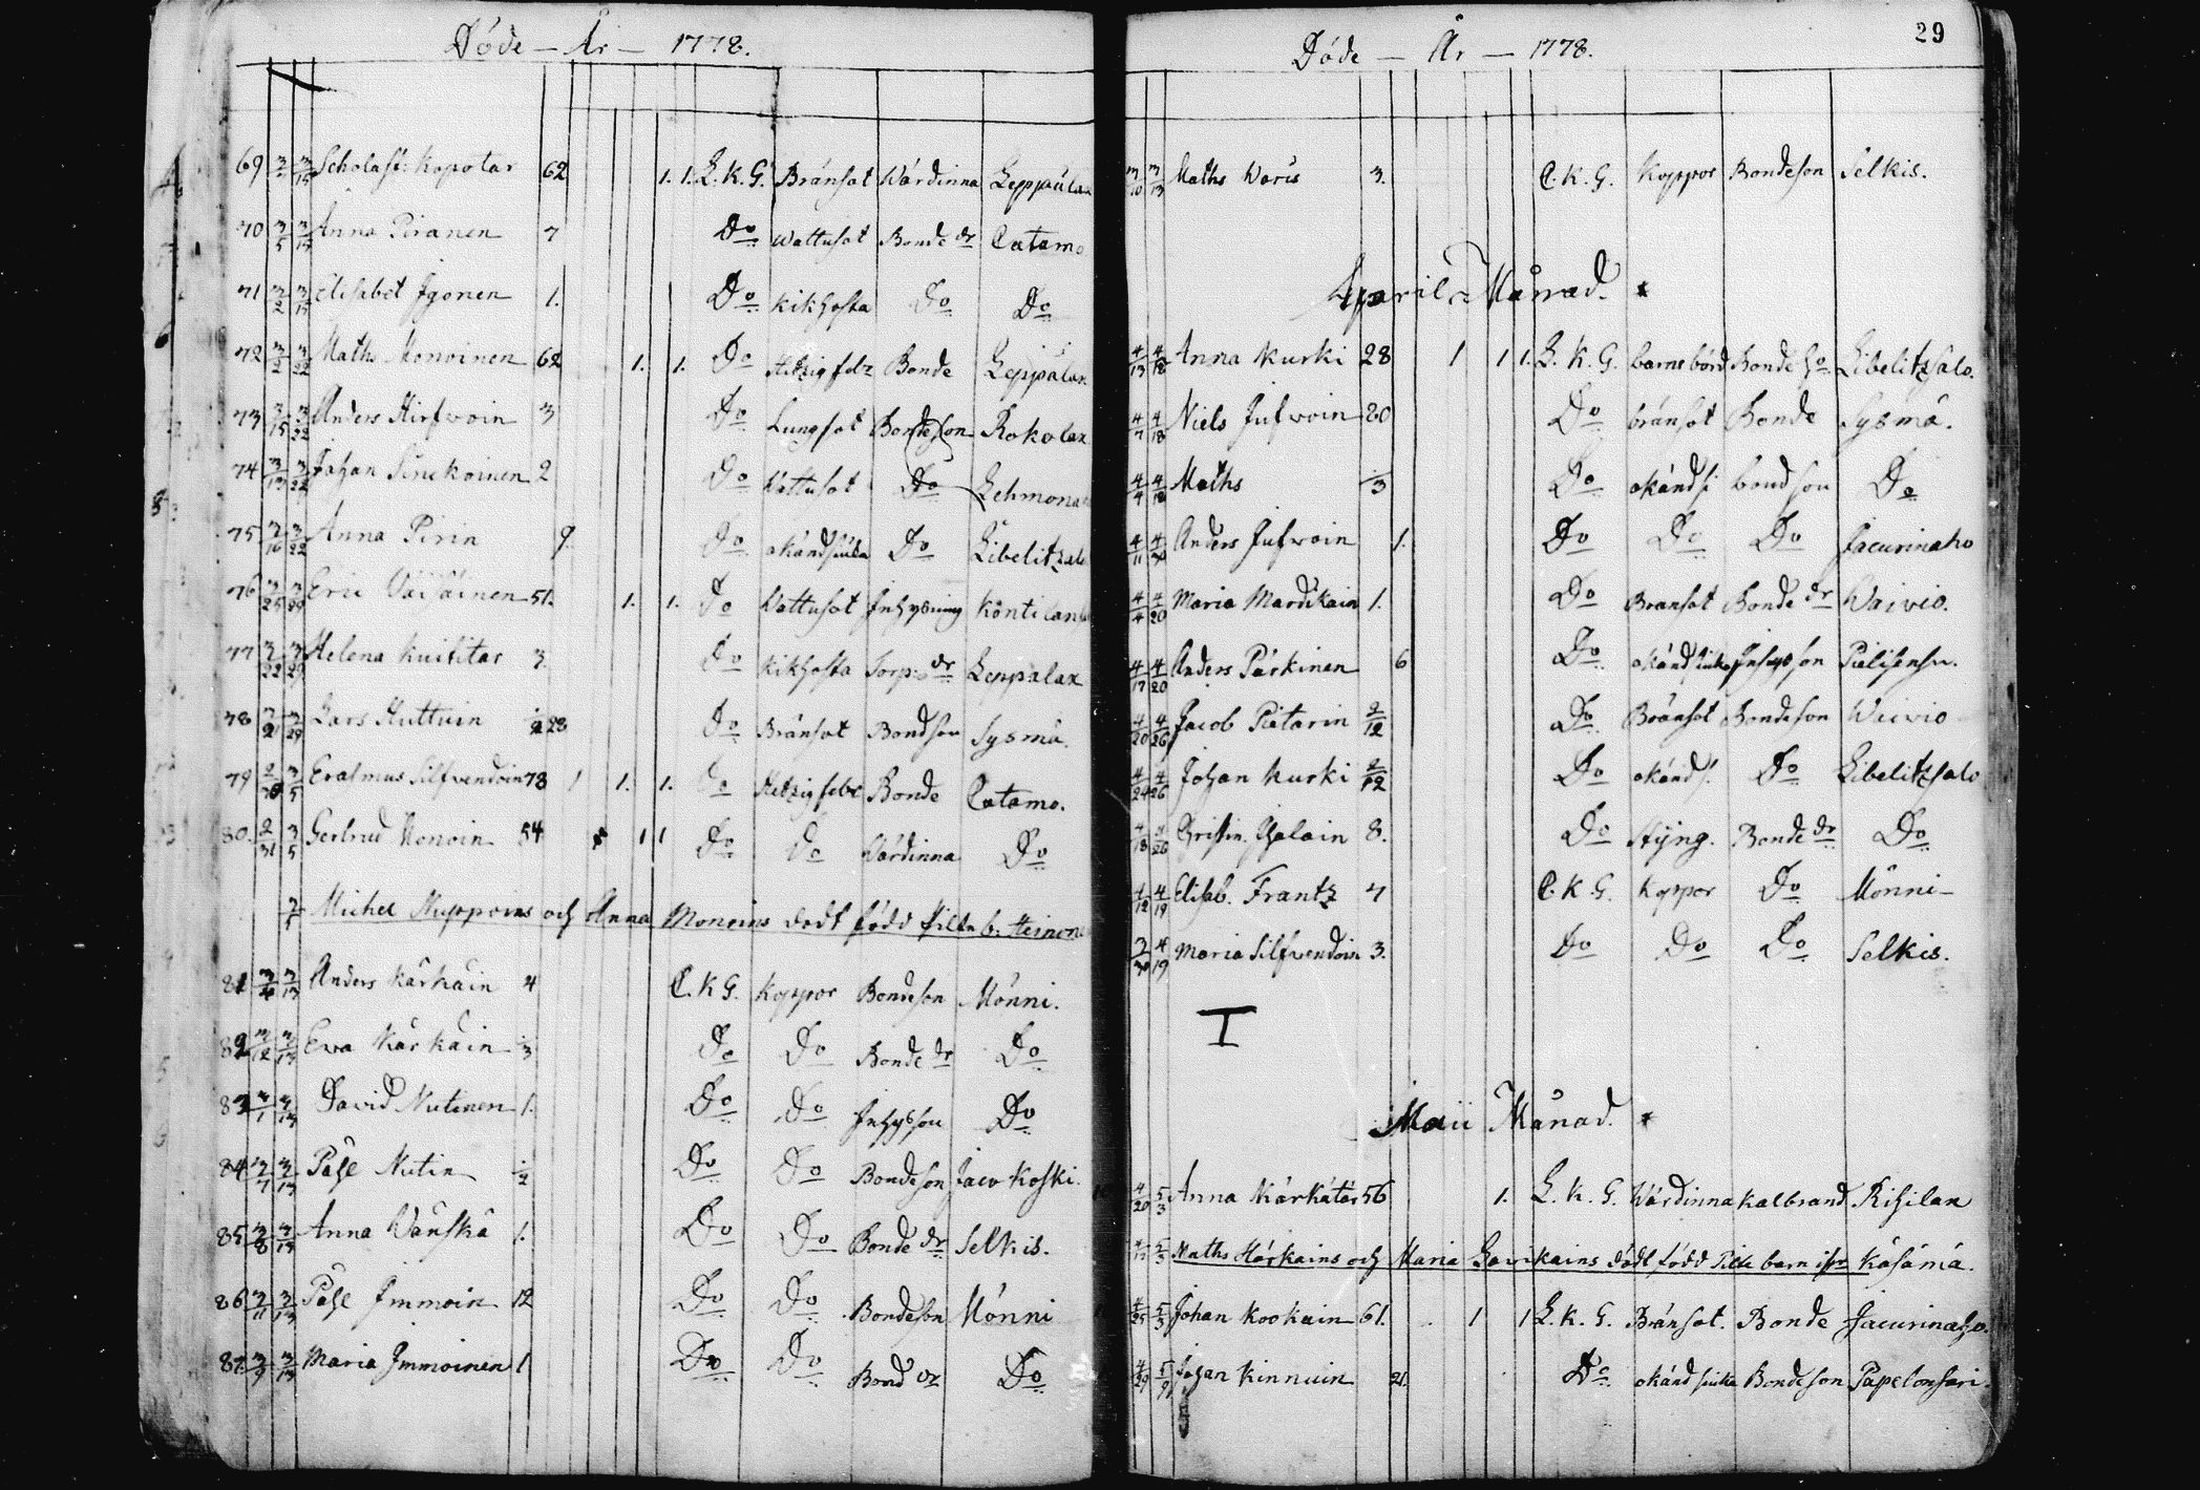 Döde — År — 1778.
69 3/2 3/15 Scholast: Kopotar 62 1. 1. L. K. G. Bränsot Wärdinna Leppälax
70 3/5 3/15 Anna Piranen 7 Do Wattusot Bonde dr Catamo
71 3/2 3/15 Elisabet Igonen 1. Do Kikhosta Do Do
72 3/2 3/22 Maths Monoinen 62 1. 1. Do Bonde Leppälax
73 3/15 3/22 Anders Hirfwoin 3 Do Lungsot Bondeson Rokolax
74 3/13 3/22 Johan Sinekoinen 2 Do Wattusot Do Lehmona
75 3/16 3/22 Anna Pirin 9. Do okänd siuka Do Libelitzalo
76 3/25 3/29 Eric Väisäinen 51. 1. 1. Do Wattusot Inhysning Kontilan
77 3/22 3/29 Helena Kuifitar 3. Do Kikhosta Sorp: dr Leppalax
78 3/21 3/29 Lars Huttuin 23 Do Bränsot Bondson Sysmä.
79 3/5 Erasmus Silfvendoin 78 1 1. 1. Do Bonde Catamo.
80. 2/31 3/5 Gertrud Nonoin 54 1 1 Do Do Wärdinna Do
Michel Nuppoins och Anna Monoins dödt född
81 3/4 3/13 Anders Kärkäin 4 C. K G. Koppor Bondeson Mönni.
82 3/12 3/13 Ewa Kärkäin 3 Do Do Bonde dr Do
83 3/1 3/13 David Nutinen 1. Do Do Inhysson Do
84 3/7 3/13 Påhl Nutin 1/2 Do Do Bondeson Jacokoski.
85 3/8 3/13 Anna Wänskä 1. Do Do Bonde dr Selkis.
86 3/11 3/13 Påhl Immoin 12 Do Do Bondeson Mönni
87. 3/9 3/13 Maria Immoinen 1 Do Do Bond dr Do
29
Döde — År — 1778.
3/10 3/13 Maths Waris 3. C. K. G. Koppor Bondeson Selkis.
April Månad.
4/13 4/18 Anna Kurki 28 1 1 1. L. K. G. barnsbörd Bonde ho Libelitzsalo.
4/7 4/18 Niels Jufwoin 20 Do bränsot Bonde Sysmä.
4/4 4/18 Maths /3 Do okänd s. bondson Do
4/11 Anders Jufwoin 1. Do Do Do Jacurinaho
4/4 4/20 Maria Mardikain 1. Do Bränsot Bonde dr Waivio.
4/17 4/20 Anders Pärkinen 6 Do okänd siuka Inhysson Pielisensu.
4/20 4/26 Jacob Pietarin 2/12 Do Bränsot Bondeson Weivio
4/24 4/26 Johan Kurki 2/12 Do okänd s. Do Libelitzsalo
4/18 4/26 Christin. Ihalain 8. Do Styng. Bonde dr Do
4/12 4/19 Elisab. Frantz 7 C. K G. Koppor Do Mönni
3/30 4/19 Maria Silfvendoin 3. Do Do Do Selkis.
Maii Månad.
4/20 5/3 Anna Kärkätär 56 1. L. K. G. Wärdinna Kalbrand Rihilax
5/3 Maths Härkains och Maria Lavikains dödt född Kåsämä.
4/25 5/3 Johan Kookain 61. 1 1 L. K. G. Bränsot. Bonde Jacurinaho.
4/29 5/9 Johan Kinnuin 21. Do okänd siuka Bondeson Papelonsari.